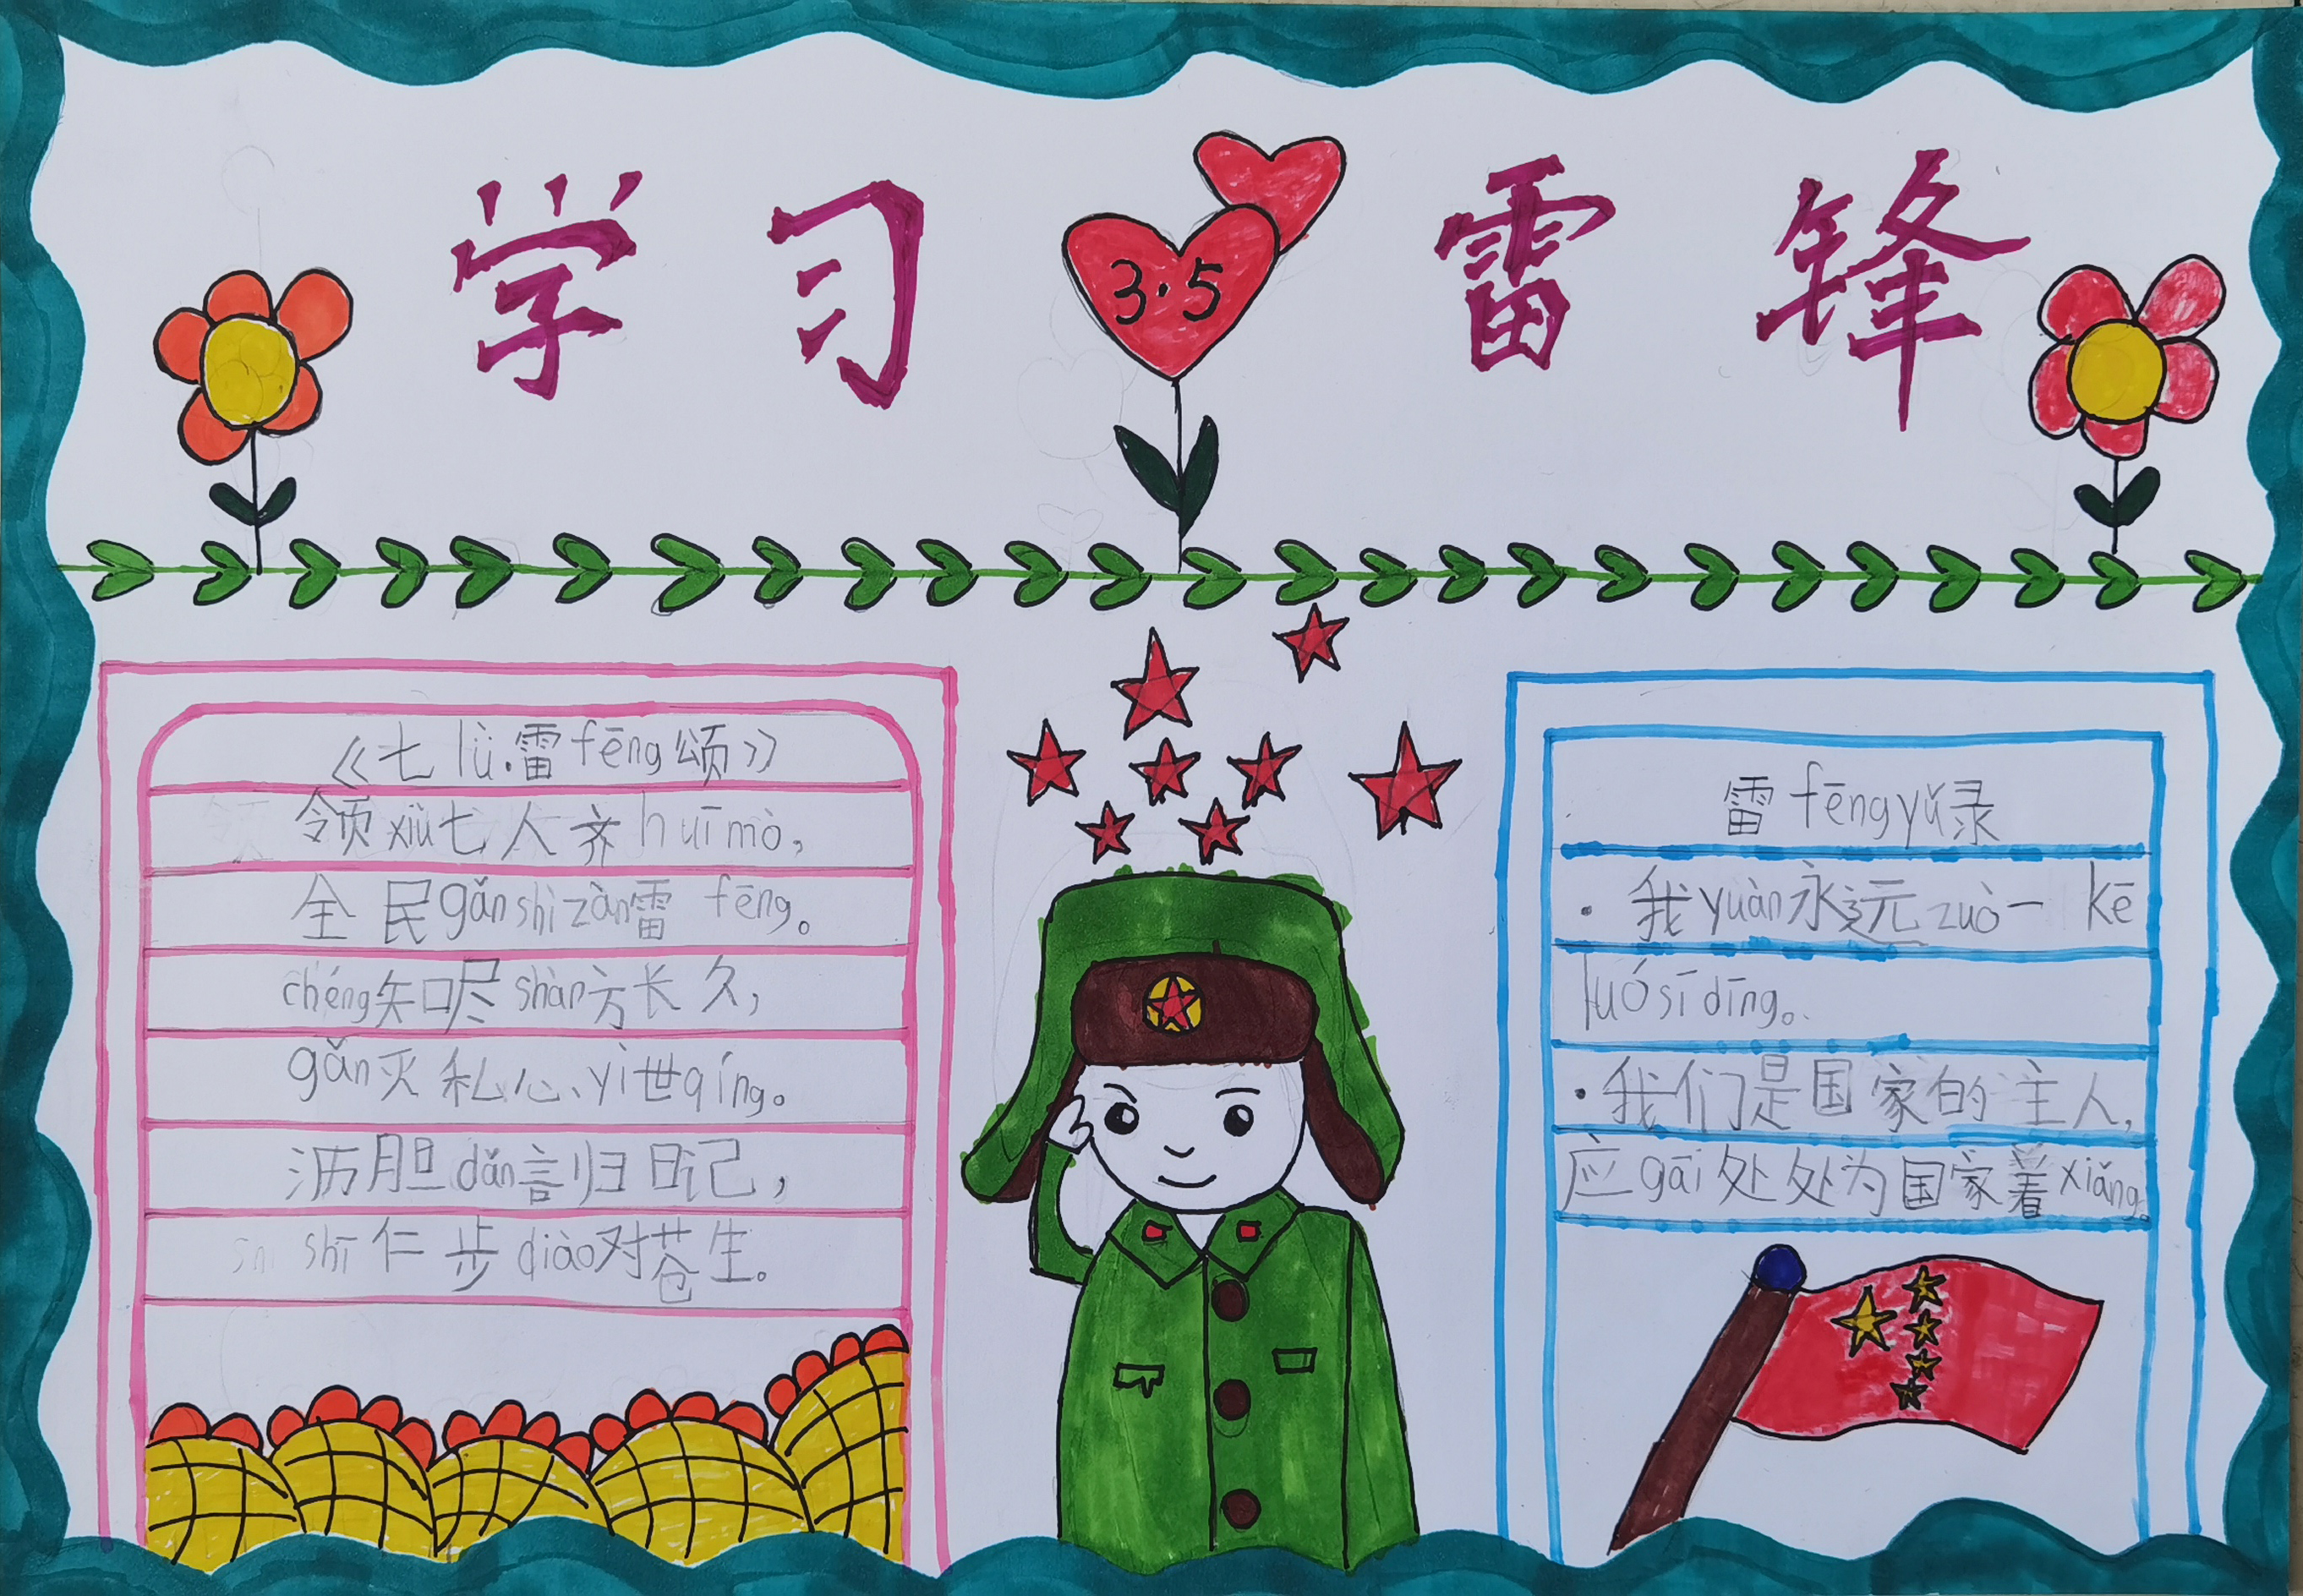 学习 3·5 雷锋
《七lǜ·雷fēng颂》
领xiù七人齐huīmò，
全民gǎnshìzàn雷fēng。
chéng知口尽shàn方长久，
gǎn灭私心、yì世qíng。
沥胆dǎn言归日记，
shī仁步diào对苍生。
雷fēngyǔ录
·我yuàn永远zuò一kē
luósīdīng。
·我们是国家的主人，
应gāi处处为国家着xiǎng。